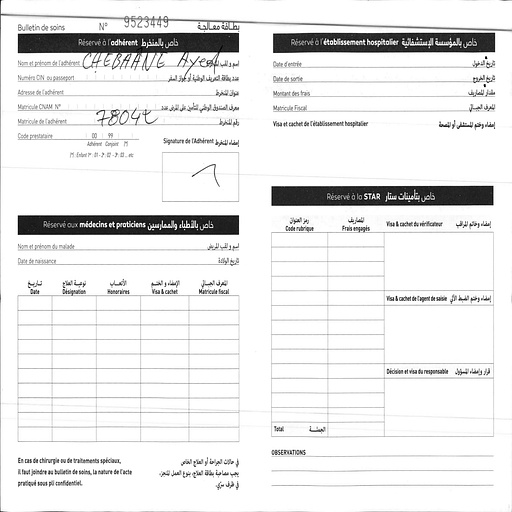 Bulletin de soins N° 9523449 بطاقة معالجة
Réservé à l'adhérent خاص بالمنخرط
Nom et prénom de l'adhérent CHEBAANE Ayed إسم و لقب المنخرط
Numéro CIN ou passeport عدد بطاقة التعريف الوطنية أو جواز السفر
Adresse de l'adhérent عنوان المنخرط
Matricule CNAM N°
Matricule de l'adhérent 7804 رقم المنخرط
Code prestataire 00 99
Adhérent Conjoint (*)
(*) : Enfant 1er : 01 - 2è : 02 - 3è : 03 ... etc
Signature de l'Adhérent إمضاء المنخرط
Réservé aux médecins et praticiens خاص بالأطباء والممارسين
Nom et prénom du malade إسم و لقب المريض
Date de naissance تاريخ الولادة
تاريخ نوعية العلاج الأتعاب الإمضاء و الختم المعرف الجبائي
Date Désignation Honoraires Visa & cachet Matricule fiscal
En cas de chirurgie ou de traitements spéciaux,
il faut joindre au bulletin de soins, la nature de l'acte
pratiqué sous pli confidentiel.
في حالات الجراحة أو العلاج الخاص
يجب مصاحبة بطاقة العلاج، بنوع العمل المنجز،
في ظرف سري.
Réservé à l'établissement hospitalier خاص بالمؤسسة الإستشفائية
Date d'entrée تاريخ الدخول
Date de sortie تاريخ الخروج
Montant des frais مقدار المصاريف
Matricule Fiscal المعرف الجبائي
Visa et cachet de l'établissement hospitalier إمضاء وختم المستشفى أو المصحة
Réservé à la STAR خاص بتأمينات ستار
رمز العنوان المصاريف
Code rubrique Frais engagés
Visa & cachet du vérificateur إمضاء وخاتم المراقب
Visa & cachet de l'agent de saisie إمضاء وختم الضبط الآلي
Décision et visa du responsable قرار وإمضاء المسؤول
Total الجملة
OBSERVATIONS